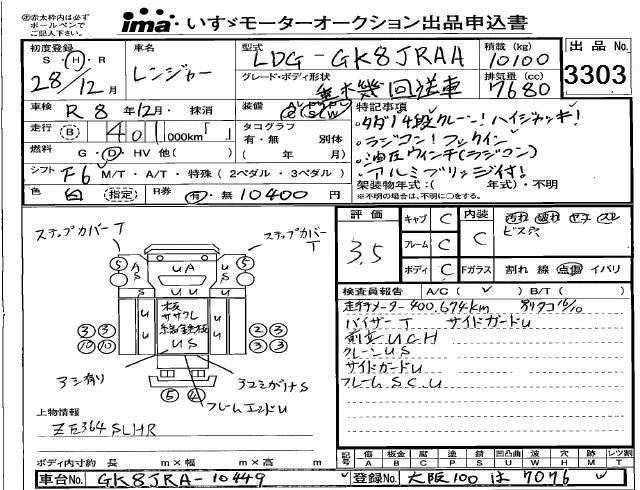 ◎赤太枠内は必ず
ボールペンで
ご記入下さい。
ima いすゞモーターオークション出品申込書
初度登録 S・H・R 28/12月
車名 レンジャー
型式 LDG-GK8JRAA
積載(kg) 10100
出品No. 3303
グレード・ボディ形状 重機回送車
排気量(cc) 7680
車検 R 8年12月・抹消
装備
特記事項
走行 B 401,000km「 」
タコグラフ 有・無 別体 ( 年 月)
・タダノ4段クレーン!ハイジャッキ!
・ラジコン!フックイン
・油圧ウインチ(ラジコン)
・アルミブリッジ付!
燃料 G・D・HV 他( )
シフト F6 M/T・A/T・特殊(2ペダル・3ペダル)
架装物年式:( 年式)・不明
※不明の場合は、不明に○をする。
色 白 (指定) R券 有・無 10400円
評価 3.5
キャブ C
フレーム C
ボディ C
内装 C
汚れ 破れ ヤケ スレ
ビス穴
Fガラス 割れ 線 点傷 イバリ
ステップカバーT
ステップカバー
T
⑤ A S U A U S ⑤
S U U S
板
ササクレ
縞鉄板
U S
③③ ②③
⑩⑩ ③③
アシ有り
アユミがけS
⑤ ④
フレームエンドU
検査員報告 A/C(✓) B/T( )
走行メーター400,674km
バイザーT サイドガードU
前廻UCH
クレーンUS
サイドガードU
フレームSCU
上物情報
ZE364SLHR
ボディ内寸約 長 m×幅 m×高 m
記号 傷 板金 腐 塗 錆 凹凸曲 波 穴 跡 メド レンズ割
A B C P S U W H X M T
車台No. GK8JRA-10449
登録No. 大阪100は7076